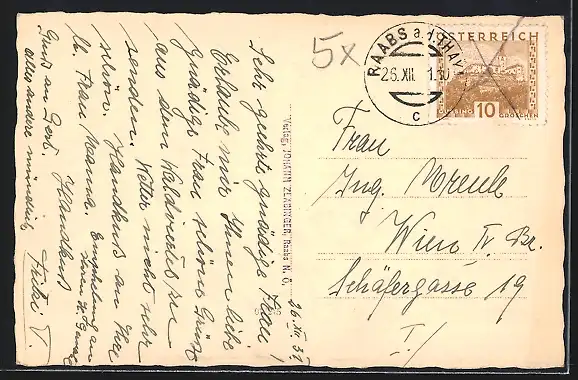 5x
RAABS a. d. THAYA
26. XII. 1.30
C
ÖSTERREICH
GÜSSING
10 GROSCHEN
Verlag JOHANN ZEXBINGER, Raabs N. Ö.
26. XII. 31.
Sehr geehrte gnädige Frau!
Erlaube mir Ihnen liebe
gnädige Frau schöne Grüße
aus dem Waldviertel zu
senden. Wetter nicht sehr
schön. Handkuss an Ihre
lb. Frau Mama. Empfehlung an
Ihren H. Gemahl
Gruss an Gert. Handkuss
alles andere mündlich, Fritzi V.
Frau
Ing.
Wien IV. Br.
Schäfergasse 19
I/